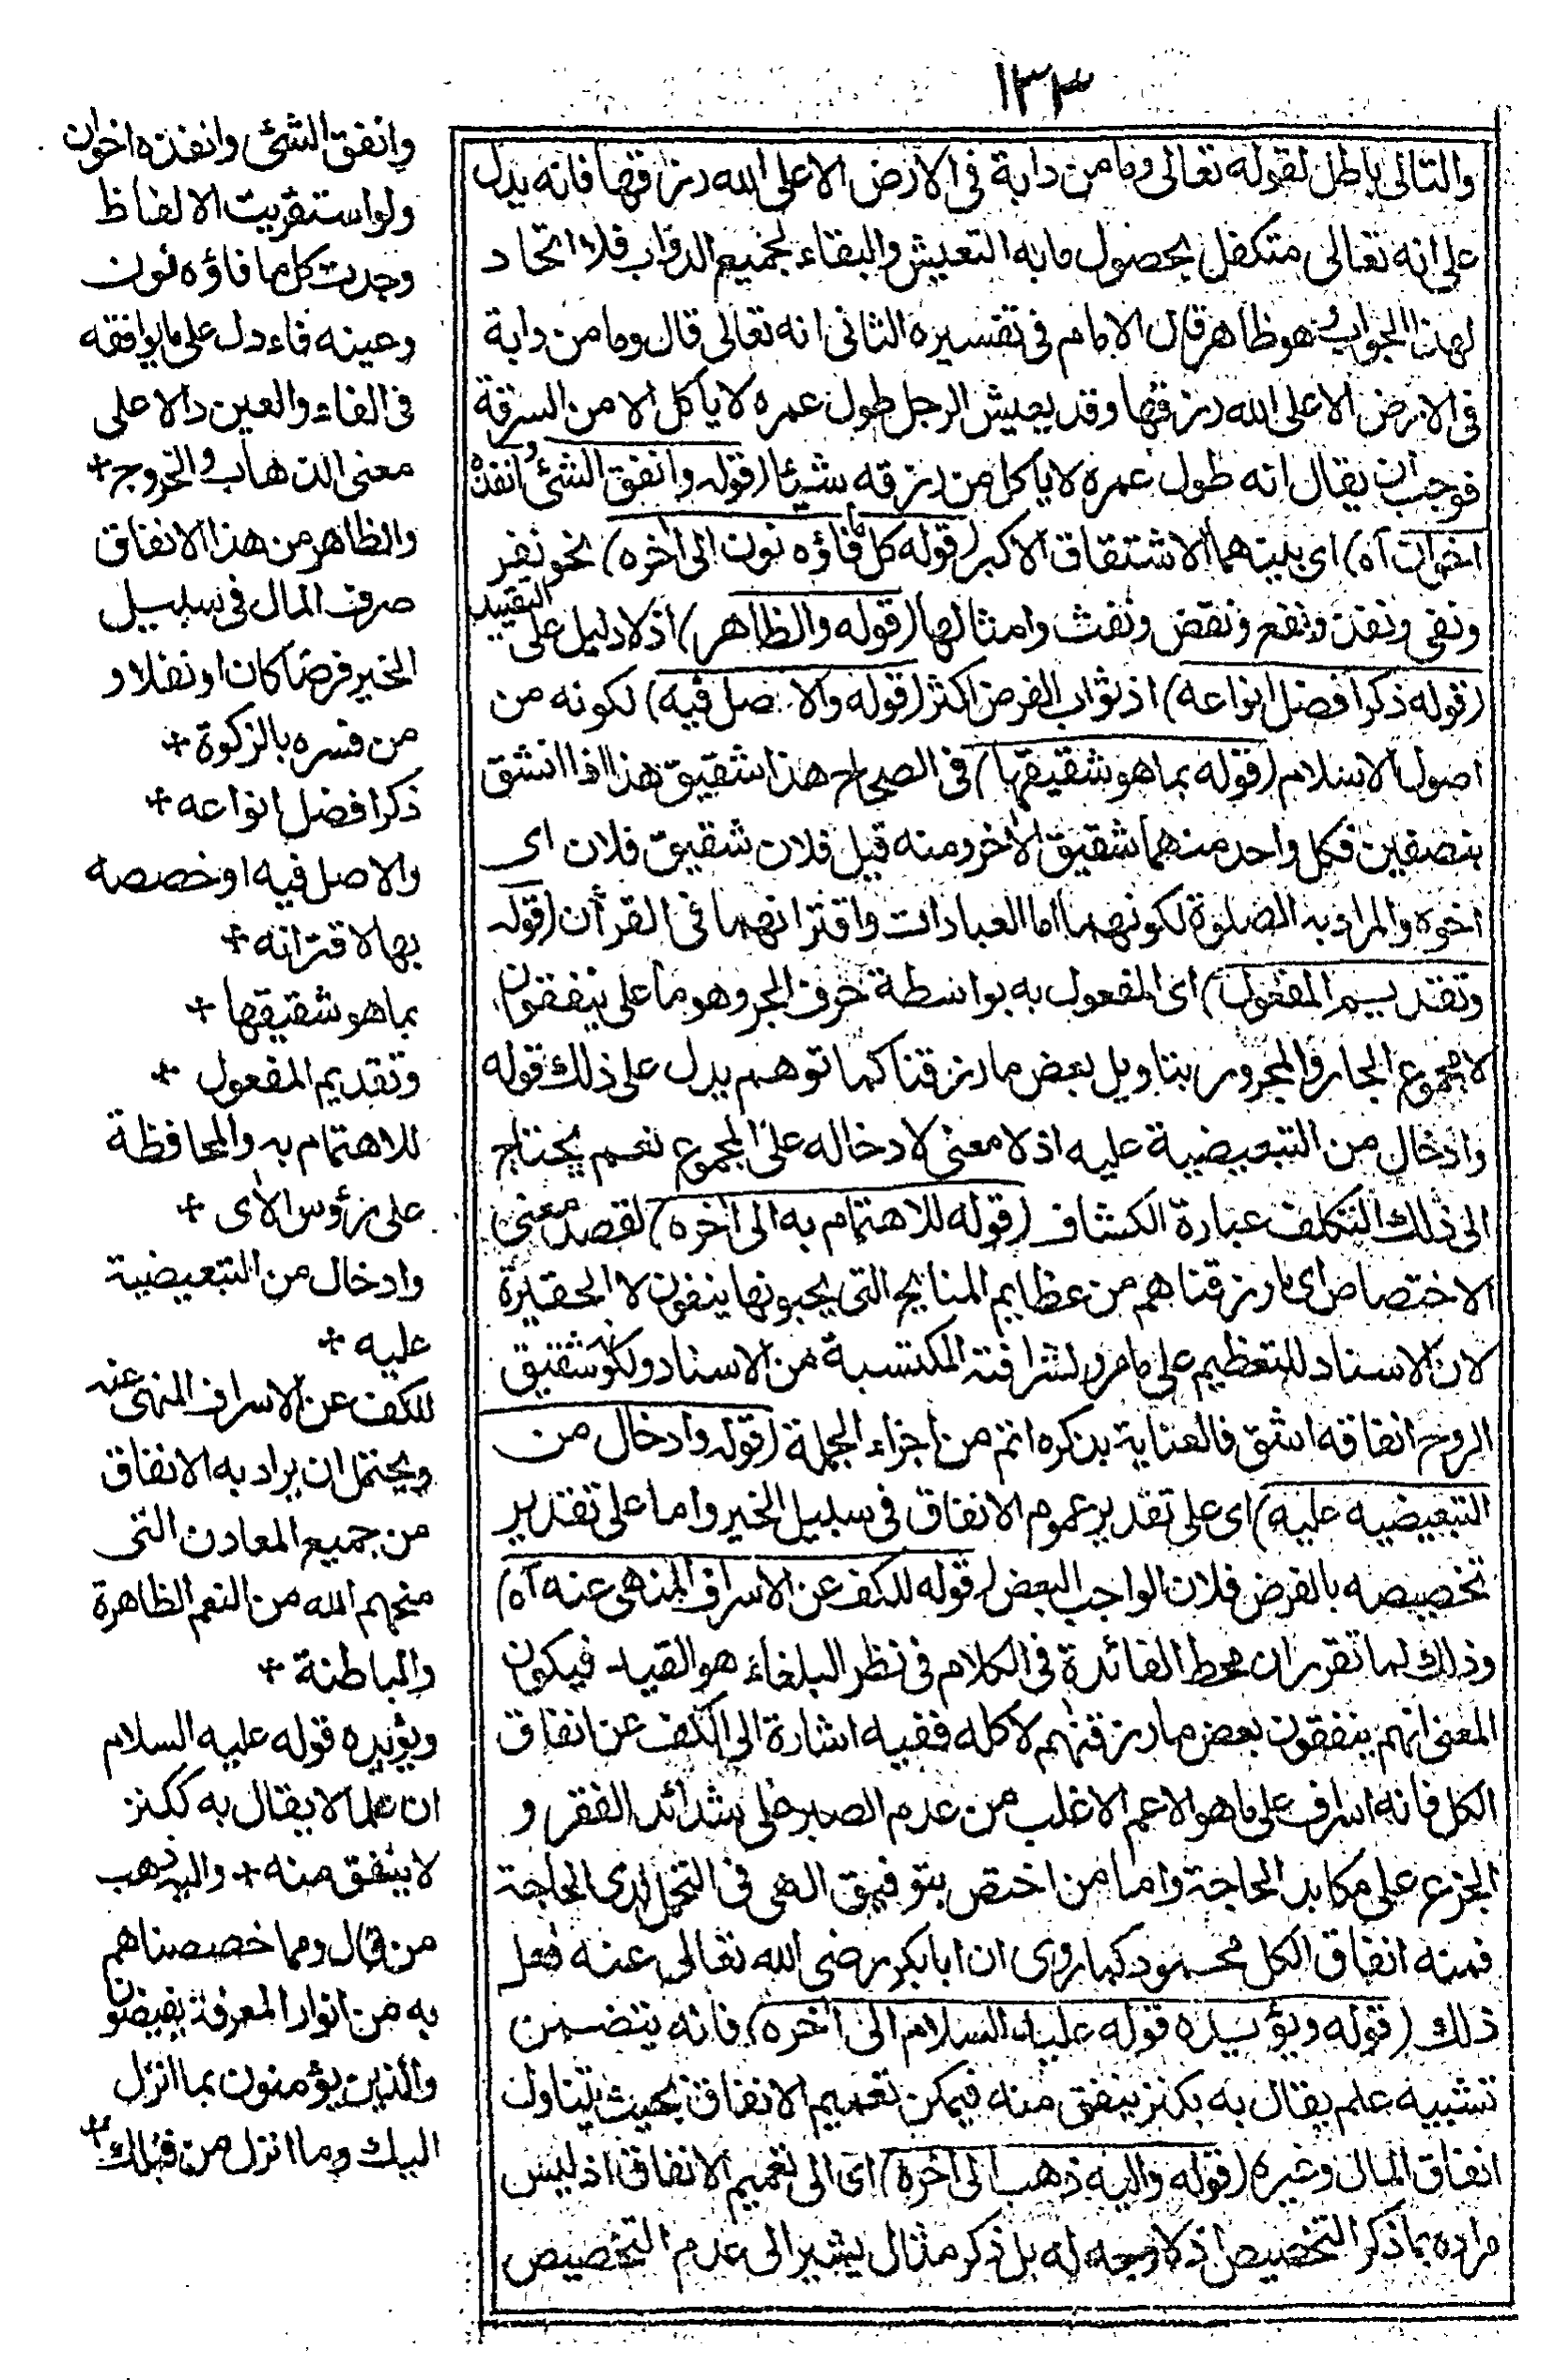 ١٣٣
والتالى باطل لقوله تعالى وما من دابة فى الارض الا على الله رزقها فانه يدل
على انه تعالى متكفل بحصول ما به التعيش والبقاء لجميع الدواب فلا اتحاد
لهذا الجواب وهو ظاهر قال الامام فى تفسيره الثانى انه تعالى قال وما من دابة
فى الارض الا على الله رزقها وقد يعيش الرجل طول عمره لا ياكل الا من السرقة
فوجب ان يقال انه طول عمره لا ياكل من رزقه شيئا (قوله وانفق الشئ وانفذه
اخوان آه) اى بينهما الاشتقاق الاكبر (قوله كل ما فاؤه نون الى اخره) نحو نفر
ونفى ونفذ ونفع ونفض ونفث وامثالها (قوله والظاهر) اذ لا دليل على التقييد
(قوله ذكر افضل انواعه) اذ ثواب الفرض اكثر (قوله والاصل فيه) لكونه من
اصول الاسلام (قوله بما هو شقيقها) فى الصحاح هذا شقيق هذا اذا انشق
بنصفين فكل واحد منهما شقيق الاخر ومنه قيل فلان شقيق فلان اى
اخوه والمراد به الصلوة لكونهما اما العبادات واقترانهما فى القرأن (قوله
وتقديم المفعول) اى المفعول به بواسطة حرف الجر وهو ما على ينفقون
لا مجموع الجار والمجرور بتاويل بعض ما رزقنا كما توهم يدل على ذلك قوله
وادخال من التبعيضية عليه اذ لا معنى لادخاله على المجموع نعم يحتاج
الى ذلك التكلف عبارة الكشاف (قوله للاهتمام به الى اخره) لقصد معنى
الاختصاص اى ما رزقناهم من عظايم المنايح التى يحبونها ينفقون لا الحقيرة
لان الاسناد للتعظيم على ما مر ولشرافته المكتسبة من الاسناد ولكونه شقيق
الروح انفاقه اشق فالعناية بذكره اتم من اجزاء الجملة (قوله وادخال من
التبعيضيه عليه) اى على تقدير عموم الانفاق فى سبيل الخير واما على تقدير
تخصيصه بالفرض فلان الواجب البعض (قوله للكف عن الاسراف المنهى عنه آه)
وذلك لما تقرر ان محط الفائدة فى الكلام فى نظر البلغاء هو القيد فيكون
المعنى انهم ينفقون بعض ما رزقنهم لا كله ففيه اشارة الى الكف عن انفاق
الكل فانه اسراف على ما هو الاعم الاغلب من عدم الصبر على شدائد الفقر و
الجزع على مكابد الحاجة واما من اختص بتوفيق الهى فى التحمل لدى الحاجة
فمنه انفاق الكل محمود كما روى ان ابا بكر رضى الله تعالى عنه فعل
ذلك (قوله ويؤيده قوله عليه السلام الى اخره) فانه يتضمن
تشبيه علم يقال به بكنز ينفق منه فيمكن تعميم الانفاق بحيث يتناول
انفاق المال وغيره (قوله واليه ذهب الى اخره) اى الى تعميم الانفاق اذ ليس
مراده بما ذكر التخصيص اذ لا وجه له بل ذكر مثال يشير الى عدم التخصيص
وانفق الشئ وانفذه اخوان
ولو استقريت الالفاظ
وجدت كل ما فاؤه نون
وعينه فاء دل على ما يوافقه
فى الفاء والعين دالا على
معنى الذهاب والخروج +
والظاهر من هذا الانفاق
صرف المال فى سبيل
الخير فرضا كان او نفلا و
من فسره بالزكوة +
ذكر افضل انواعه +
والاصل فيه او خصصه
بها لاقترانه +
بما هو شقيقها +
وتقديم المفعول +
للاهتمام به والمحافظة
على رؤس الاى +
وادخال من التبعيضية
عليه +
للكف عن الاسراف المنهى عنه
ويحتمل ان يراد به الانفاق
من جميع المعادن التى
منحهم الله من النعم الظاهرة
والباطنة +
ويؤيده قوله عليه السلام
ان علما لا يقال به ككنز
لا ينفق منه + واليه ذهب
من قال ومما خصصناهم
به من انوار المعرفة يفيضون
والذين يؤمنون بما انزل
اليك وما انزل من قبلك +